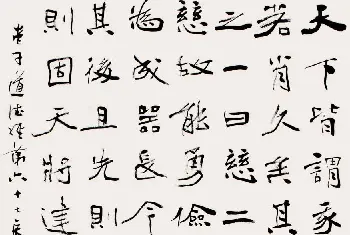 天下皆謂我
若肖久矣其
之一曰慈二
慈故能勇儉
為成器長今
其後且先則
則固天將建
老子道德經第六十七章